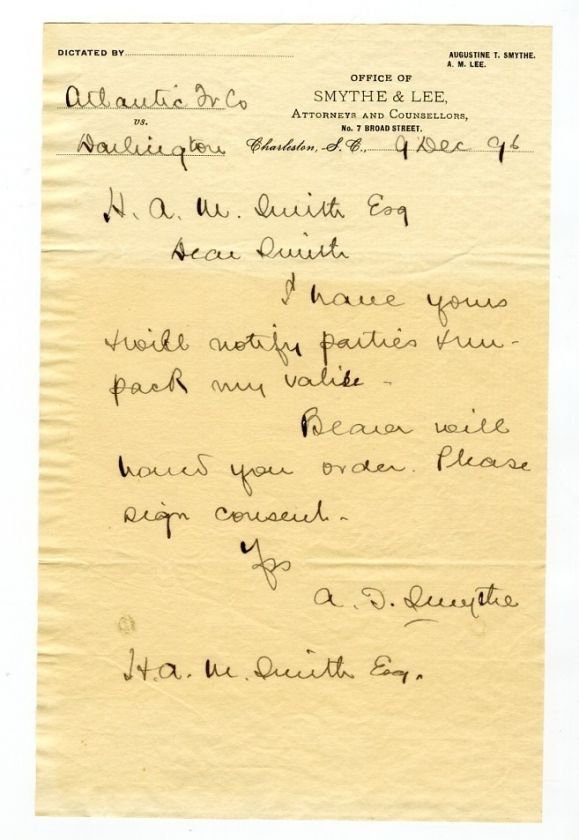 DICTATED BY
AUGUSTINE T. SMYTHE.
A. M. LEE.
OFFICE OF
SMYTHE & LEE,
ATTORNEYS AND COUNSELLORS,
No. 7 BROAD STREET.
Atlantic Tr Co
vs.
Darlington
Charleston, S. C., 9 Dec 96
H. A. M. Smith Esq
Dear Smith
I have yours
& will notify parties & un-
pack my valise -
Bearer will
hand you order. Please
sign consent -
Yrs
A. T. Smythe
H. A. M. Smith Esq.